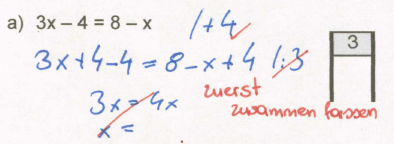 a) 3x – 4 = 8 – x   /+4
3x+4-4 = 8-x+4 /:3
3
3x = 4x
zuerst
zusammen fassen
x =